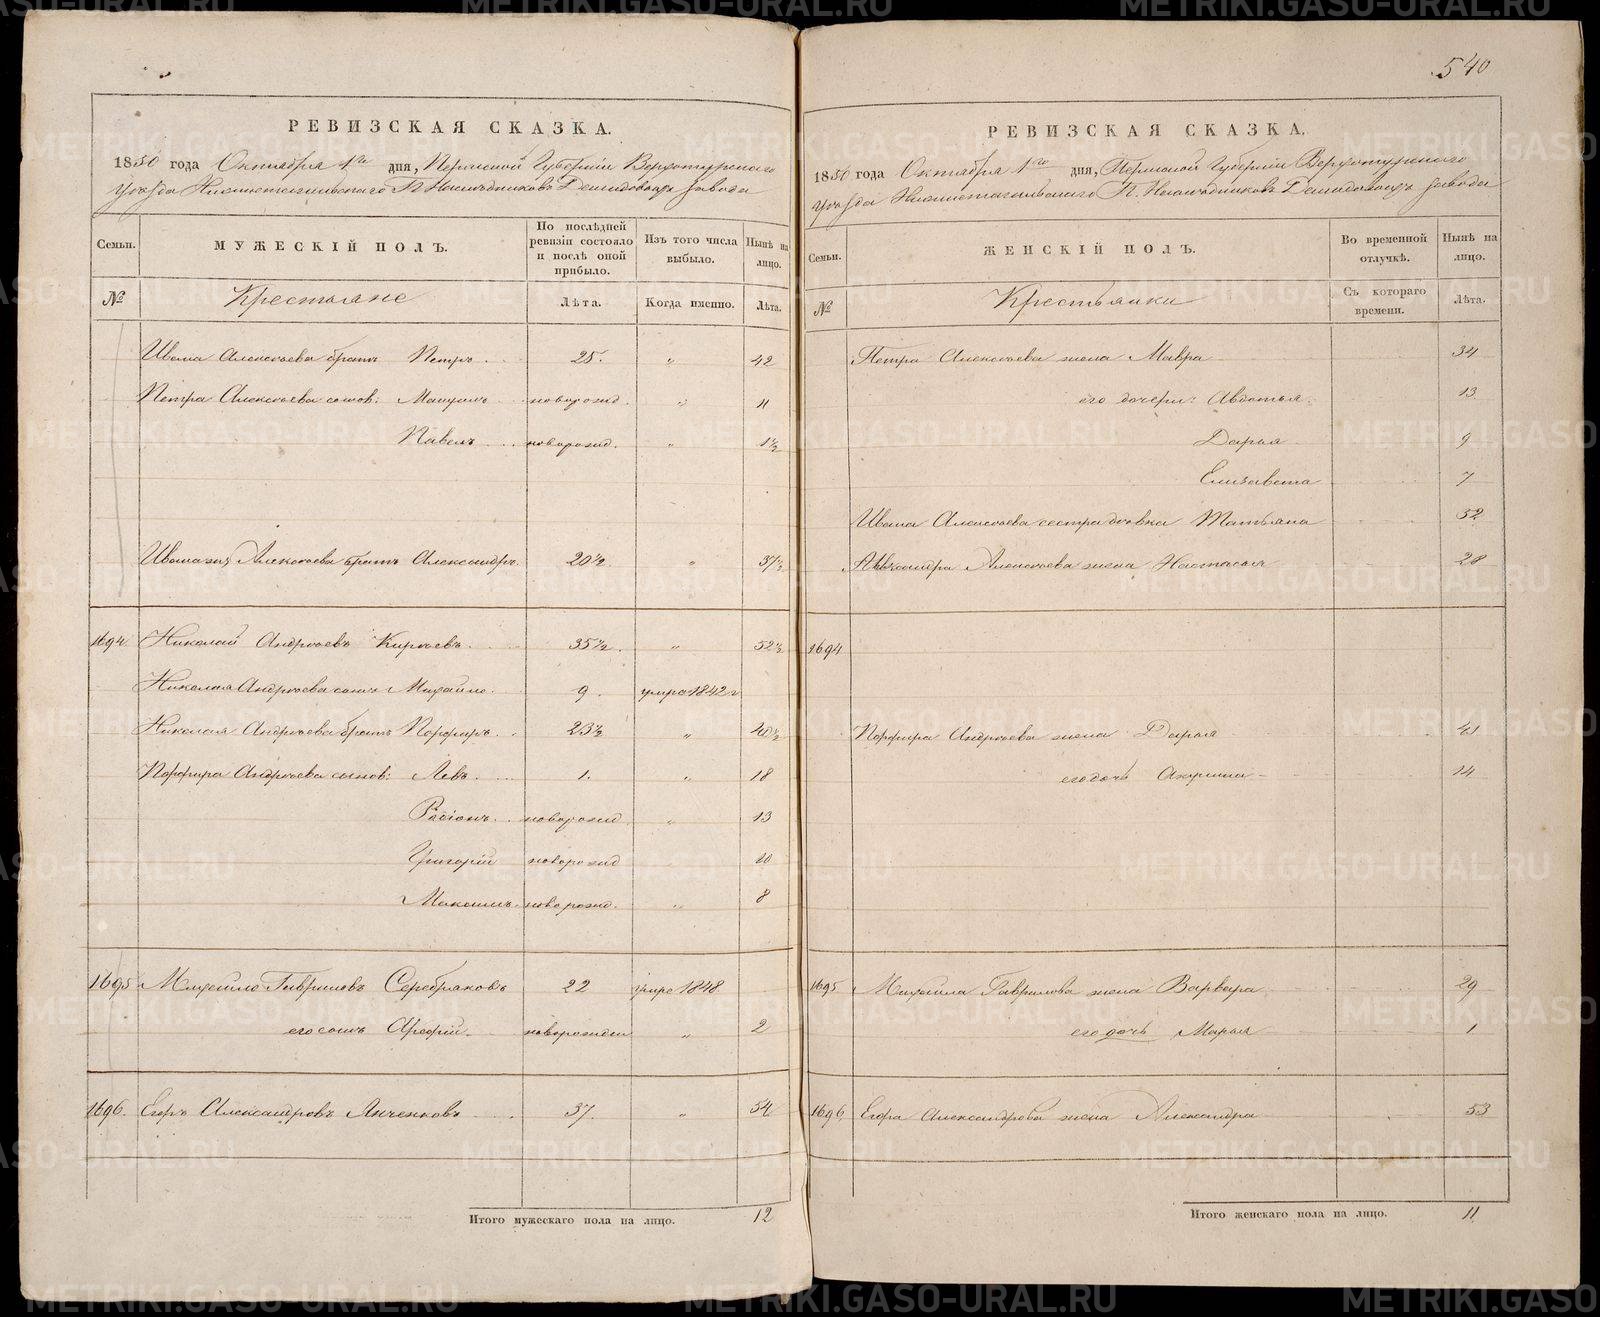 540
РЕВИЗСКАЯ СКАЗКА.
1850 года Октября 1го дня, Пермской Губернии Верхотурскаго
Уѣзда Нижнетагильскаго Г. Наслѣдниковъ Демидовыхъ завода
Семьи.
МУЖЕСКІЙ ПОЛЪ.
По послѣдней ревизіи состояло и послѣ оной прибыло.
Изъ того числа выбыло.
Нынѣ на лицо.
№ Крестьяне Лѣта. Когда именно. Лѣта.
Ивана Алексѣева братъ Петръ 25. " 42
Петра Алексѣева сынов: новорожд. " 11
Павелъ новорожд. " 1½
Ивана Алексѣева братъ Александръ 20½ " 37½
1694 Николай Андреевъ Киреевъ 35½. " 52½
Николая Андреева сынъ Михайло 9. умре 1842 г
Николая Андреева братъ Порфиръ 23½ " 40½
Порфира Андреева сынов: Левъ 1. " 18
новорожд. " 13
Григорій новорожд " 10
Максимъ новорожд. " 8
1695 Михайло Гавриловъ Серебряковъ 22 умре 1848
его сынъ Арефій новорожден " 2
1696. Егоръ Александровъ Янченковъ 37. " 54
Итого мужескаго пола на лицо. 12
РЕВИЗСКАЯ СКАЗКА.
1850 года Октября 1го дня, Пермской Губерніи Верхотурскаго
Уѣзда Нижнетагильскаго Г. Наслѣдниковъ Демидовыхъ завода
Семьи.
ЖЕНСКІЙ ПОЛЪ.
Во временной отлучкѣ.
Нынѣ на лицо.
№ Крестьянки Съ котораго времени. Лѣта.
Петра Алексѣева жена Мавра 34
его дочери: Авдотья 13
Дарья 9
Елизавета 7
Ивана Алексѣева сестра дѣвка Татьяна 52
Александра Алексѣева жена Настасья 28
1694
Порфира Андреева жена Дарья 41
его дочь Акулина 14
1695 Михайла Гаврилова жена Варвара 29
его дочь Марья 1
1696. Егора Александрова жена Александра 53
Итого женскаго пола на лицо. 11
METRIKI.GASO-URAL.RU